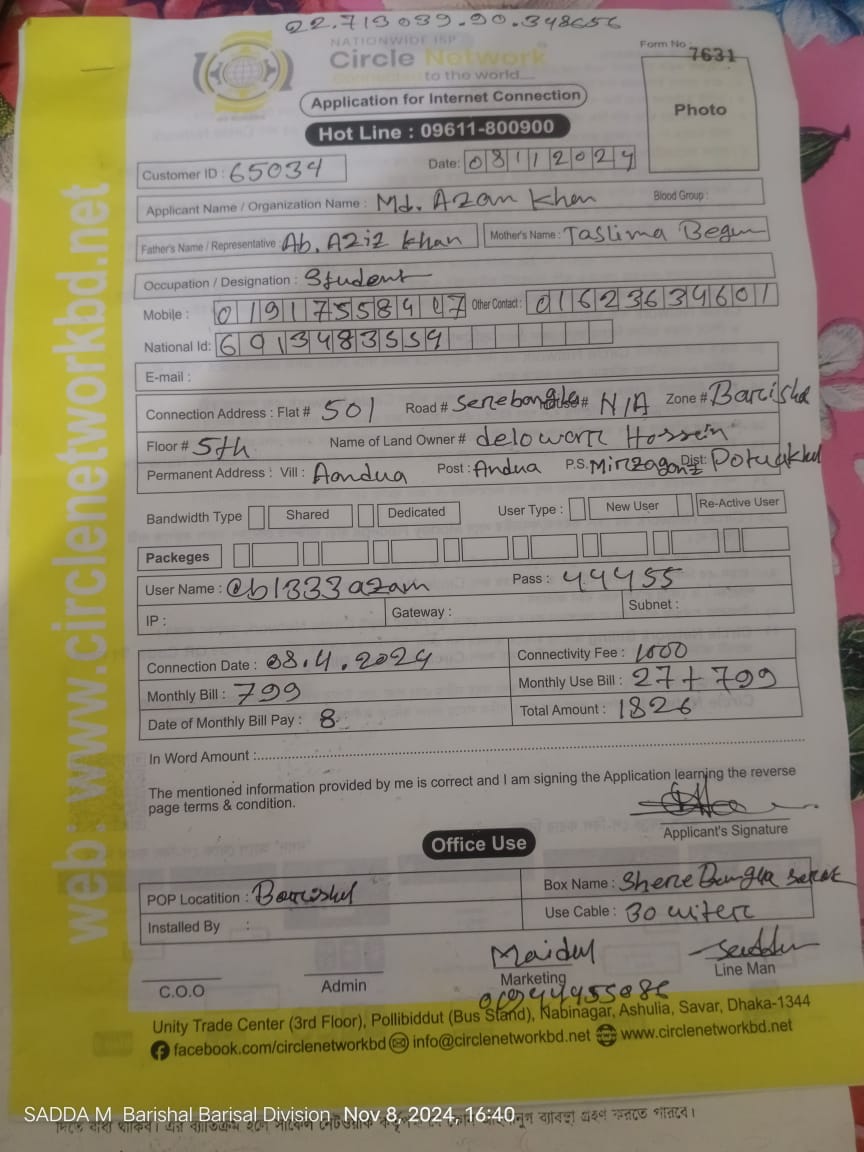 22.713039.90.348656
NATIONWIDE ISP
Circle Network
Connected to the world....
Form No : 7631
Photo
Application for Internet Connection
Hot Line : 09611-800900
Customer ID : 65034
Date: 08112024
Applicant Name / Organization Name : Md. Azam Khan Blood Group :
Father's Name / Representative : Ab. Aziz Khan Mother's Name : Taslima Begum
Occupation / Designation : Student
Mobile : 01917558407 Other Contact : 01623634601
National Id: 6913483559
E-mail :
Connection Address : Flat # 501 Road # Serebangla House# N/A Zone # Barishal
Floor # 5th Name of Land Owner # delowarr Hossein
Permanent Address : Vill : Aandua Post : Andua P.S. Mirzagonz Dist: Potuakhal
Bandwidth Type Shared Dedicated User Type : New User Re-Active User
Packeges
User Name : @b1333azam Pass : 44455
IP : Gateway : Subnet :
Connection Date : 08.11.2024 Connectivity Fee : 1000
Monthly Bill : 799 Monthly Use Bill : 27+799
Date of Monthly Bill Pay : 8 Total Amount : 1826
In Word Amount :
The mentioned information provided by me is correct and I am signing the Application learning the reverse
page terms & condition.
Applicant's Signature
Office Use
POP Locatition : Barishal Box Name : Shere Bangla Sarak
Installed By : Use Cable : 30 miter
Maidul
C.O.O Admin Marketing Line Man
Unity Trade Center (3rd Floor), Pollibiddut (Bus Stand), Nabinagar, Ashulia, Savar, Dhaka-1344
facebook.com/circlenetworkbd info@circlenetworkbd.net www.circlenetworkbd.net
web: www.circlenetworkbd.net
SADDA M Barishal Barisal Division Nov 8, 2024, 16:40